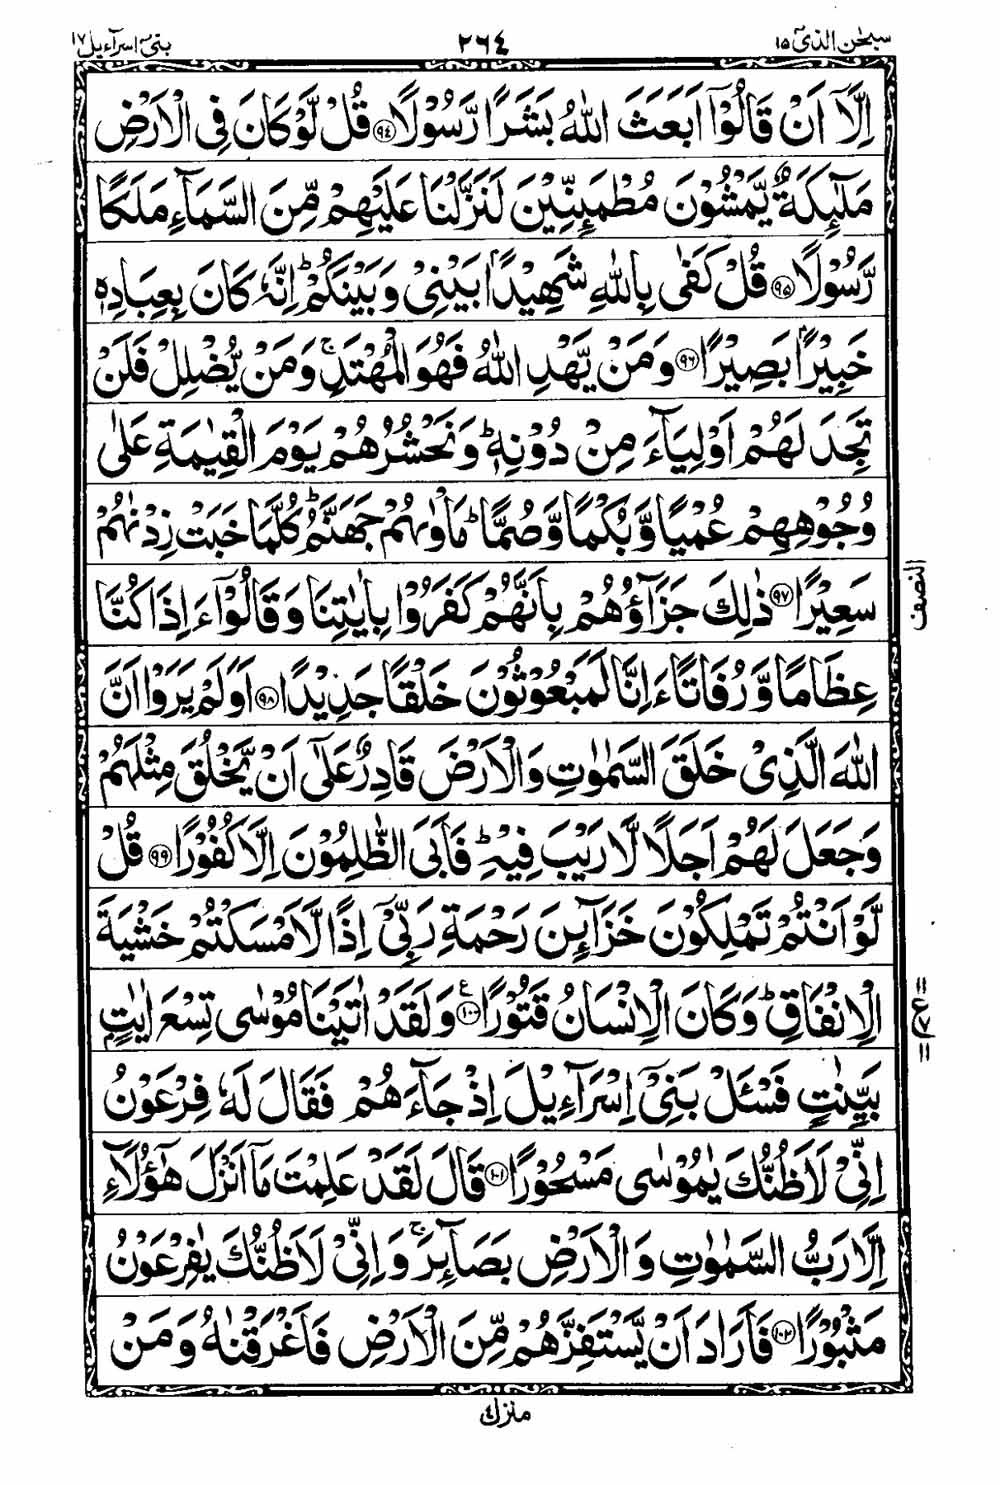 سبحٰن الذیۤ ١٥ ٢٦٤ بنیۤ اسرآءیل ١٧
اِلَّاۤ اَنْ قَالُوْۤا اَبَعَثَ اللّٰهُ بَشَرًا رَّسُوْلًا ﴿٩٤﴾ قُلْ لَّوْ كَانَ فِی الْاَرْضِ
مَلٰٓىِٕكَةٌ یَّمْشُوْنَ مُطْمَىِٕنِّیْنَ لَنَزَّلْنَا عَلَیْهِمْ مِّنَ السَّمَآءِ مَلَكًا
رَّسُوْلًا ﴿٩٥﴾ قُلْ كَفٰی بِاللّٰهِ شَهِیْدًۢا بَیْنِیْ وَ بَیْنَكُمْ ؕ اِنَّهٗ كَانَ بِعِبَادِهٖ
خَبِیْرًۢا بَصِیْرًا ﴿٩٦﴾ وَ مَنْ یَّهْدِ اللّٰهُ فَهُوَ الْمُهْتَدِ ۚ وَ مَنْ یُّضْلِلْ فَلَنْ
تَجِدَ لَهُمْ اَوْلِیَآءَ مِنْ دُوْنِهٖ ؕ وَ نَحْشُرُهُمْ یَوْمَ الْقِیٰمَةِ عَلٰی
وُجُوْهِهِمْ عُمْیًا وَّ بُكْمًا وَّ صُمًّا ؕ مَاْوٰىهُمْ جَهَنَّمُ ؕ كُلَّمَا خَبَتْ زِدْنٰهُمْ
سَعِیْرًا ﴿٩٧﴾ ذٰلِكَ جَزَآؤُهُمْ بِاَنَّهُمْ كَفَرُوْا بِاٰیٰتِنَا وَ قَالُوْۤا ءَاِذَا كُنَّا
النصف
عِظَامًا وَّ رُفَاتًا ءَاِنَّا لَمَبْعُوْثُوْنَ خَلْقًا جَدِیْدًا ﴿٩٨﴾ اَوَ لَمْ یَرَوْا اَنَّ
اللّٰهَ الَّذِیْ خَلَقَ السَّمٰوٰتِ وَ الْاَرْضَ قَادِرٌ عَلٰۤی اَنْ یَّخْلُقَ مِثْلَهُمْ
وَ جَعَلَ لَهُمْ اَجَلًا لَّا رَیْبَ فِیْهِ ؕ فَاَبَی الظّٰلِمُوْنَ اِلَّا كُفُوْرًا ﴿٩٩﴾ قُلْ
لَّوْ اَنْتُمْ تَمْلِكُوْنَ خَزَآىِٕنَ رَحْمَةِ رَبِّیْۤ اِذًا لَّاَمْسَكْتُمْ خَشْیَةَ
الْاِنْفَاقِ ؕ وَ كَانَ الْاِنْسَانُ قَتُوْرًا ﴿١٠٠﴾ ع وَ لَقَدْ اٰتَیْنَا مُوْسٰی تِسْعَ اٰیٰتٍۭ
بَیِّنٰتٍ فَسْـَٔلْ بَنِیْۤ اِسْرَآءِیْلَ اِذْ جَآءَهُمْ فَقَالَ لَهٗ فِرْعَوْنُ
اِنِّیْ لَاَظُنُّكَ یٰمُوْسٰی مَسْحُوْرًا ﴿١٠١﴾ قَالَ لَقَدْ عَلِمْتَ مَاۤ اَنْزَلَ هٰۤؤُلَآءِ
اِلَّا رَبُّ السَّمٰوٰتِ وَ الْاَرْضِ بَصَآىِٕرَ ۚ وَ اِنِّیْ لَاَظُنُّكَ یٰفِرْعَوْنُ
مَثْبُوْرًا ﴿١٠٢﴾ فَاَرَادَ اَنْ یَّسْتَفِزَّهُمْ مِّنَ الْاَرْضِ فَاَغْرَقْنٰهُ وَ مَنْ
منزل ٤